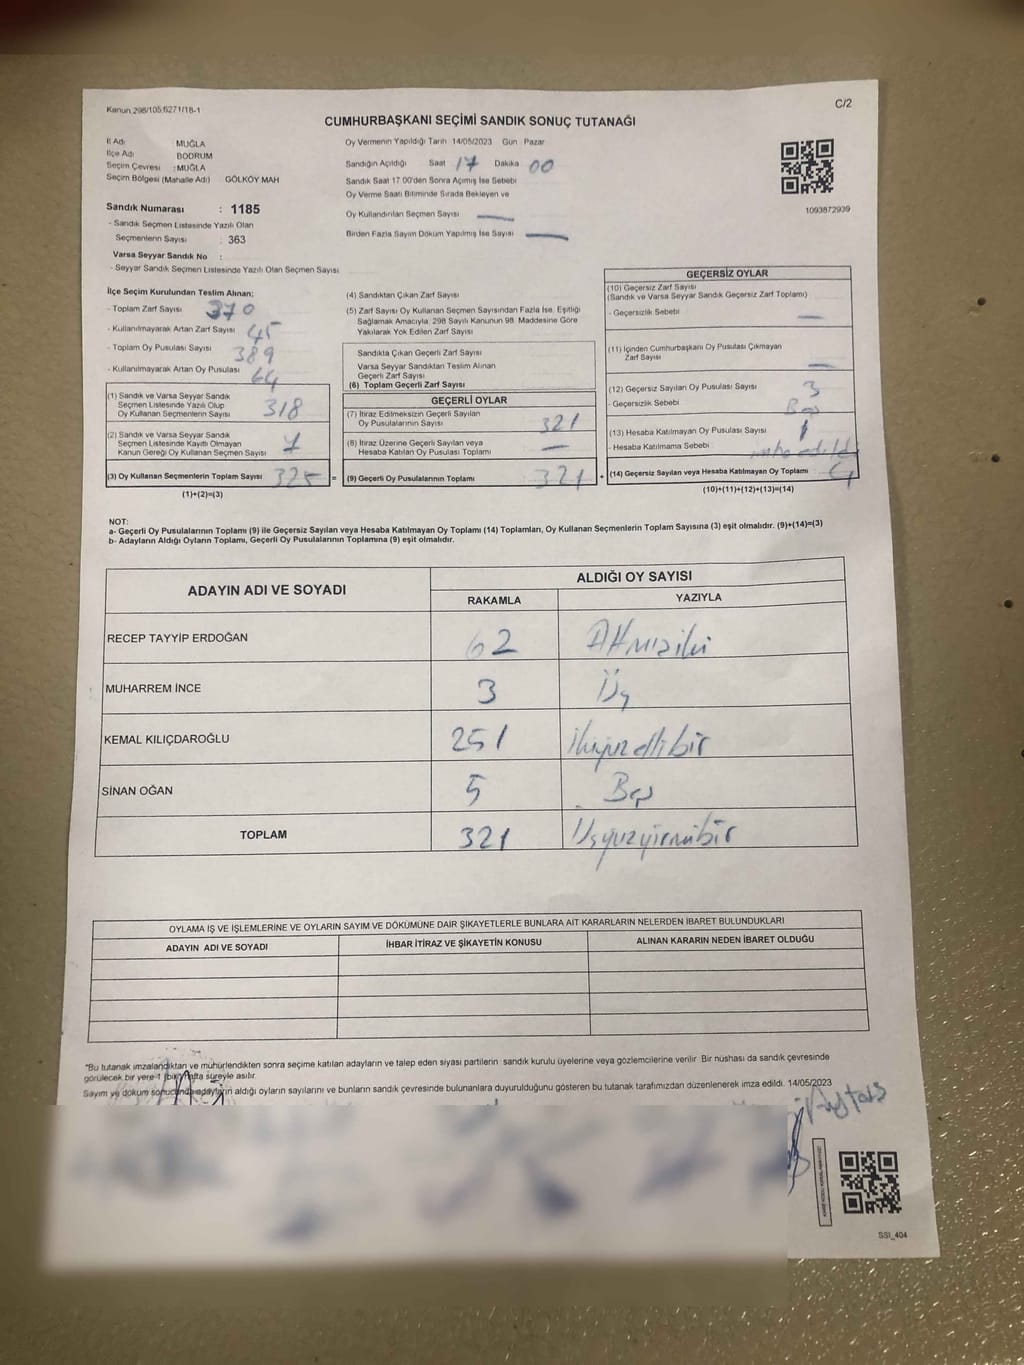 Kanun 298/105,6271/18-1
C/2
CUMHURBAŞKANI SEÇİMİ SANDIK SONUÇ TUTANAĞI
İl Adı MUĞLA
İlçe Adı BODRUM
Seçim Çevresi : MUĞLA
Seçim Bölgesi (Mahalle Adı) GÖLKÖY MAH
Sandık Numarası : 1185
- Sandık Seçmen Listesinde Yazılı Olan
Seçmenlerin Sayısı : 363
Varsa Seyyar Sandık No :
- Seyyar Sandık Seçmen Listesinde Yazılı Olan Seçmen Sayısı
Oy Vermenin Yapıldığı Tarih 14/05/2023 Gün Pazar
Sandığın Açıldığı Saat 17 Dakika 00
Sandık Saat 17:00'den Sonra Açılmış İse Sebebi
Oy Verme Saati Bitiminde Sırada Bekleyen ve
Oy Kullandırılan Seçmen Sayısı —
Birden Fazla Sayım Döküm Yapılmış İse Sayısı —
1093872939
İlçe Seçim Kurulundan Teslim Alınan;
- Toplam Zarf Sayısı 370
- Kullanılmayarak Artan Zarf Sayısı 45
- Toplam Oy Pusulası Sayısı 389
- Kullanılmayarak Artan Oy Pusulası 64
(1) Sandık ve Varsa Seyyar Sandık
Seçmen Listesinde Yazılı Olup
Oy Kullanan Seçmenlerin Sayısı 318
(2) Sandık ve Varsa Seyyar Sandık
Seçmen Listesinde Kayıtlı Olmayan
Kanun Gereği Oy Kullanan Seçmen Sayısı 7
(3) Oy Kullanan Seçmenlerin Toplam Sayısı 325 =
(1)+(2)=(3)
(4) Sandıktan Çıkan Zarf Sayısı
(5) Zarf Sayısı Oy Kullanan Seçmen Sayısından Fazla İse, Eşitliği
Sağlamak Amacıyla, 298 Sayılı Kanunun 98. Maddesine Göre
Yakılarak Yok Edilen Zarf Sayısı
Sandıkta Çıkan Geçerli Zarf Sayısı
Varsa Seyyar Sandıktan Teslim Alınan
Geçerli Zarf Sayısı
(6) Toplam Geçerli Zarf Sayısı
GEÇERLİ OYLAR
(7) İtiraz Edilmeksizin Geçerli Sayılan
Oy Pusulalarının Sayısı 321
(8) İtiraz Üzerine Geçerli Sayılan veya
Hesaba Katılan Oy Pusulası Toplamı —
(9) Geçerli Oy Pusulalarının Toplamı 321 +
GEÇERSİZ OYLAR
(10) Geçersiz Zarf Sayısı
(Sandık ve Varsa Seyyar Sandık Geçersiz Zarf Toplamı)
- Geçersizlik Sebebi —
(11) İçinden Cumhurbaşkanı Oy Pusulası Çıkmayan
Zarf Sayısı —
(12) Geçersiz Sayılan Oy Pusulası Sayısı 3
- Geçersizlik Sebebi
(13) Hesaba Katılmayan Oy Pusulası Sayısı 1
- Hesaba Katılmama Sebebi imha edildi
(14) Geçersiz Sayılan veya Hesaba Katılmayan Oy Toplamı 4
(10)+(11)+(12)+(13)=(14)
NOT:
a- Geçerli Oy Pusulalarının Toplamı (9) ile Geçersiz Sayılan veya Hesaba Katılmayan Oy Toplamı (14) Toplamları, Oy Kullanan Seçmenlerin Toplam Sayısına (3) eşit olmalıdır. (9)+(14)=(3)
b- Adayların Aldığı Oyların Toplamı, Geçerli Oy Pusulalarının Toplamına (9) eşit olmalıdır.
ADAYIN ADI VE SOYADI
ALDIĞI OY SAYISI
RAKAMLA YAZIYLA
RECEP TAYYİP ERDOĞAN 62 Altmışiki
MUHARREM İNCE 3 Üç
KEMAL KILIÇDAROĞLU 251 İkiyüz elli bir
SİNAN OĞAN 5 Beş
TOPLAM 321 Üçyüzyirmibir
OYLAMA İŞ VE İŞLEMLERİNE VE OYLARIN SAYIM VE DÖKÜMÜNE DAİR ŞİKAYETLERLE BUNLARA AİT KARARLARIN NELERDEN İBARET BULUNDUKLARI
ADAYIN ADI VE SOYADI İHBAR İTİRAZ VE ŞİKAYETİN KONUSU ALINAN KARARIN NEDEN İBARET OLDUĞU
*Bu tutanak imzalandıktan ve mühürlendikten sonra seçime katılan adayların ve talep eden siyasi partilerin sandık kurulu üyelerine veya gözlemcilerine verilir. Bir nüshası da sandık çevresinde
görülecek bir yere 1 (bir) hafta süreyle asılır.
Sayım ve döküm sonucunda adayların aldığı oyların sayılarını ve bunların sandık çevresinde bulunanlara duyurulduğunu gösteren bu tutanak tarafımızdan düzenlenerek imza edildi. 14/05/2023
SSI_404